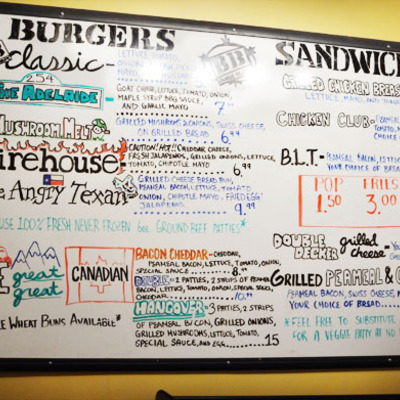 BURGERS
Classic-
LETTUCE, TOMATO,
254
THE ADELAIDE
GOAT CHEESE, LETTUCE, TOMATO, ONION,
MAPLE SYRUP BBQ SAUCE,
AND GARLIC MAYO
7.99
MUSHROOM MELT
GRILLED MUSHROOMS & ONIONS, SWISS CHEESE,
ON GRILLED BREAD 6.99
irehouse
CAUTION! HOT!! CHEDDAR CHEESE,
FRESH JALAPENOS, GRILLED ONIONS, LETTUCE,
TOMATO, CHIPOTLE MAYO 6.99
ANGRY TEXAN
GRILLED CHEESE BREAD BUN,
PEAMEAL BACON, LETTUCE, TOMATO,
ONION, CHIPOTLE MAYO, FRIED EGG
JALAPENOS 9.99
USE 100% FRESH NEVER FROZEN 6oz GROUND BEEF PATTIES*
great
great
CANADIAN
BACON CHEDDAR - CHEDDAR,
PEAMEAL BACON, LETTUCE, TOMATO, ONION,
SPECIAL SAUCE 8.99
DOUBLE - 2 PATTIES, 2 STRIPS OF PEAMEAL
BACON, LETTUCE, TOMATO, ONION, SPECIAL SAUCE,
CHEDDAR
HANGOVER - 3 PATTIES, 2 STRIPS
OF PEAMEAL BACON, GRILLED ONIONS,
GRILLED MUSHROOMS, LETTUCE, TOMATO,
SPECIAL SAUCE, AND EGG 15
WHEAT BUNS AVAILABLE*
BBB
SANDWIC
GRILLED CHICKEN BREAS
LETTUCE, MAYO, AND TOMATO
CHICKEN CLUB -
B.L.T. - PEAMEAL BACON, LETTU
YOUR CHOICE OF BREA
POP
1.50
FRIES
3.00
DOUBLE
DECKER grilled
cheese -
GRILLED PEAMEAL &
PEAMEAL BACON, SWISS CHEESE,
YOUR CHOICE OF BREAD
*FEEL FREE TO SUBSTITUTE
FOR A VEGGIE PATTY AT NO